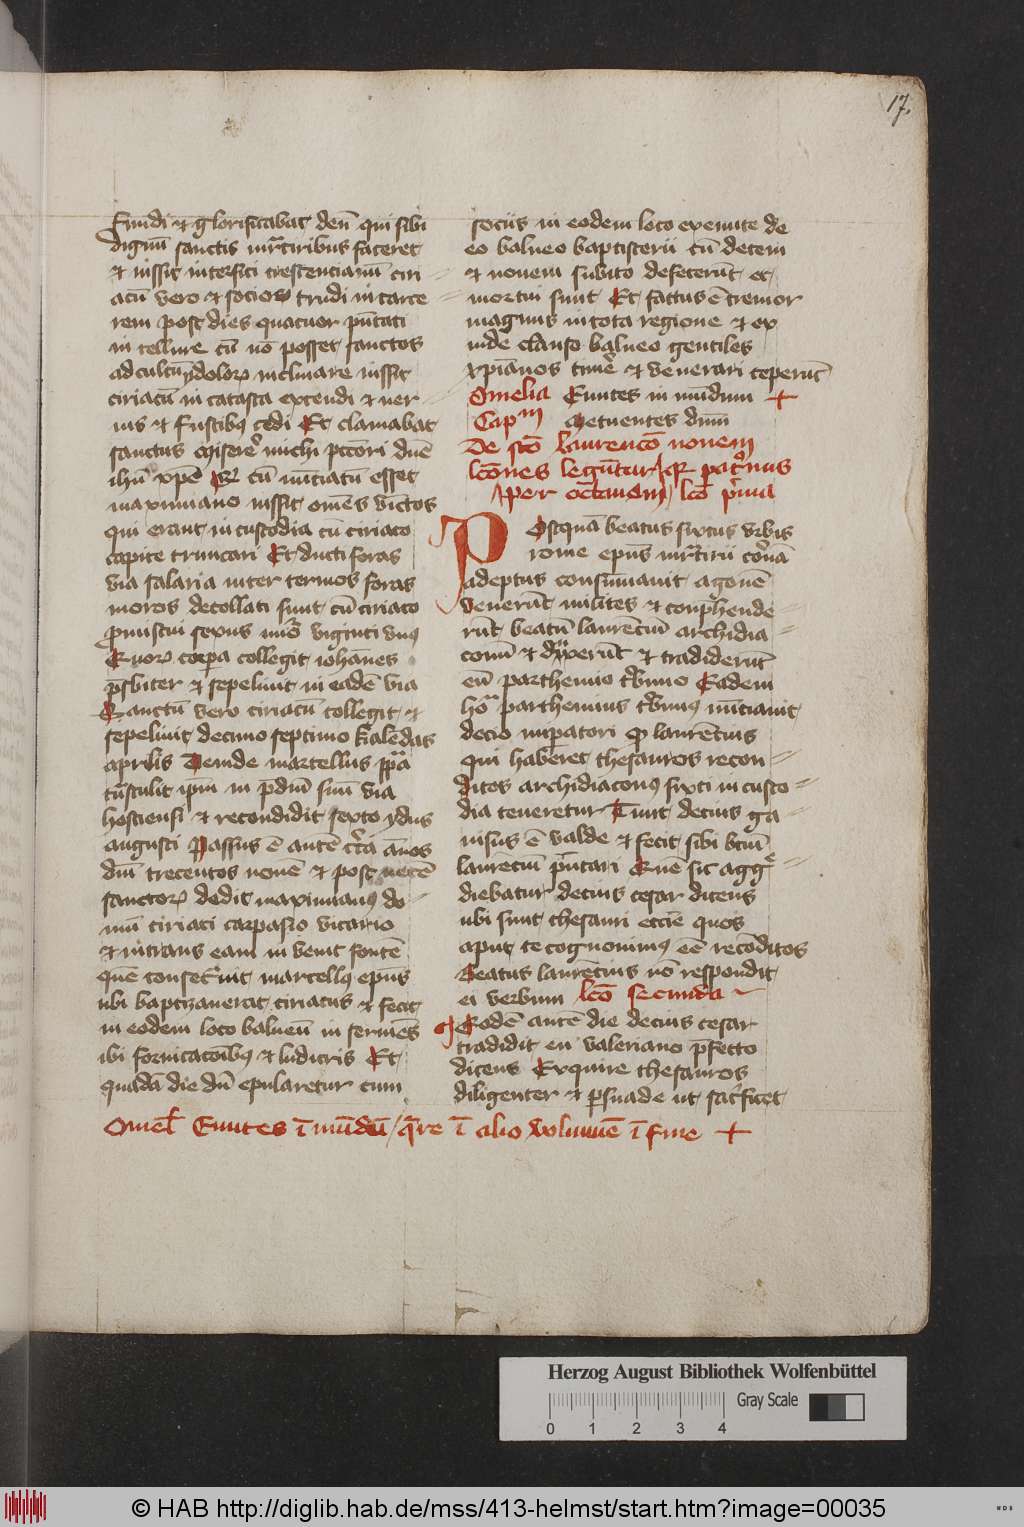 17.
fundi et glorificabat deū qui sibi
dignū sanctis mr̄tiribus faceret
et iussit interfici crescencianū ciri
acū vero et socios trudi in carce
rem post dies quatuor pn̄tati
in tellure cū nō posset sanctos
ad cultū ydoloꝝ inclinare iussit
ciriacū in catasta extendi et ner
uis et fustibꝯ cedi Et clamabat
sanctus Miserere michi pctōri dn̄e
ihū xpē cū nūciatū esset
maximiano iussit omēs vīctos
qui erant in custodia cū ciriaco
capite truncari Et ducti foras
via salaria inter termos foras
moros decollati sunt cū ciriaco
promiscui sexus viginti vnꝯ
Quoꝝ corpora collegit iohānes
prs̄biter et sepeliuit in eadē via
Sanctū vero ciriacū collegit et
sepeliuit decimo septimo kalēdas
aprilis Deinde marcellus ppͣ
trāsculit ipm̄ in p̄diū suū via
hostiensi et recondidit sexto ydus
augusti Passus ē autē cͥca ānos
dnī trecentos nouē et post necē
sanctoꝝ dedit maximianꝯ do
mū ciriaci carpasio vicario
et intrans eam in venit fontē
quē consecͣuit marcellꝯ epūs
ubi baptizauerat ciriacus et fecit
in eodem loco balneū in sermēs
ibi fornicacōibꝯ et ludicris Et
quadā die dū epularetur cum
sociis in eodem loco exeunte de
eo balneo baptisterii cū decem
et nouem subito defecerūt et
mortui sunt Et factus ē tremor
magnus in tota regione et ex
inde clauso balneo gentiles
xpiānos timē et venerari ceperūt
Omelia Euntes in mundum +
Capᵐ Metuentes dnm̄
De scō laurencō nouem
lcōnes legūtur qꝛ patͦnus
per octauam lcō pͥma
Postquā beatus sixtus vrbis
rome epūs mr̄tirii coͦnā
adeptus consūmauit agonē
venerūt milites et conp̄hende
rūt beatū laurēciū archidia
conū et dux̄erūt et tradiderūt
eū parthemio tͥbuno Eadem
hoͣ parthemius tͥbunꝯ nūciauit
decio imperatori qͦ laurēcius
qui haberet thesauros recon
ditos archidiaconꝯ sixti in custo
dia teneretur Tunc decius ga
uisus ē valde et fecit sibi btūm
laureciū pn̄tari Quē sic aggͤ
diebatur decius cesar dicens
ubi sunt thesauri eccīe quos
aput te cognouimꝯ eē recōditos
Beatus laurēcius nō respondit
ei verbum lcō secunda
Eodē autē die decius cesar
tradidit eū valeriano p̄fecto
dicens Exquire thesauros
diligenter et psuade ut sacͥficet
Omel̄ Euntes ī mūdū / qͣre ī alio volumīe ī fine +
Herzog August Bibliothek Wolfenbüttel
Gray Scale
0 1 2 3 4
© HAB http://diglib.hab.de/mss/413-helmst/start.htm?image=00035